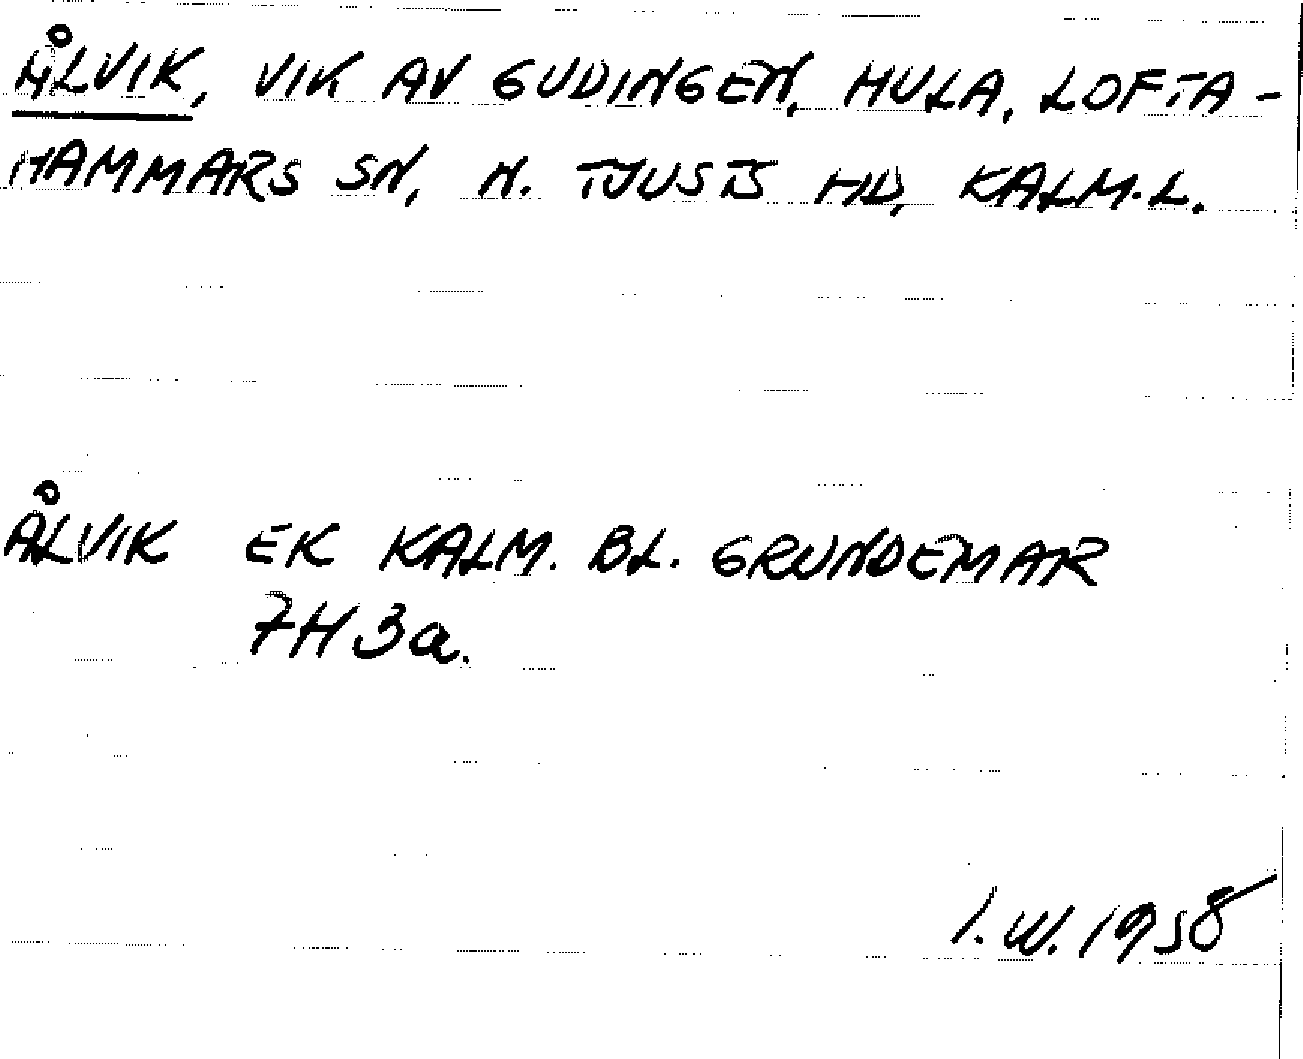 ÅLVIK, VIK AV GUDINGEN, HULA, LOFTA-
HAMMARS SN, N. TJUSTS HD, KALM.L.
ÅLVIK EK KALM. BL. GRUNDEMAR
7H3a.
I.W. 1958